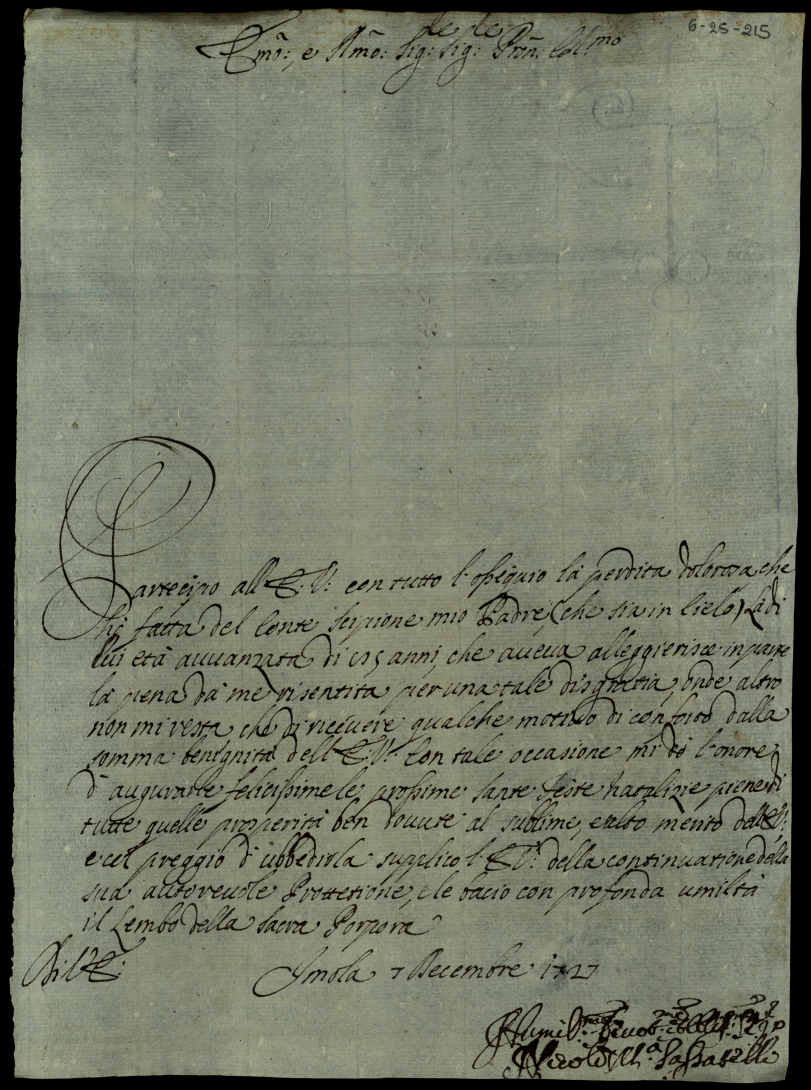 6-25-215
Emo:, e Rmo: Sig:re Sig:re Prōn: Col:mo
Partecipo all' E. V: con tutto l'ossequio la perdita dolorosa che
hò fatta del Conte Scipione mio Padre, (che sia in Cielo) La di
lui età avvanzata di 85 anni, che aveva alleggierisce in parte
la pena da me risentita per una tale disgratia, onde altro
non mi resta, che di ricevere qualche motivo di conforto dalla
somma benignità dell' E. V: Con tale occasione mi dò l'onore
d'augurarle felicissime le prossime Sante Feste natalizie piene di
tutte quelle prosperità ben dovute al sublime, e alto merito dell' E. V:
e col preggio d'ubbedirla supplico l' E. V: della continuatione della
sua autorevole Prottetione, e le bacio con profonda umiltà
il Lembo della Sacra Porpora
Di V. E:
Imola 7 Decembre 1727
Humil:mo Devot:mo Obblig:mo
Nicolò Sassatelli